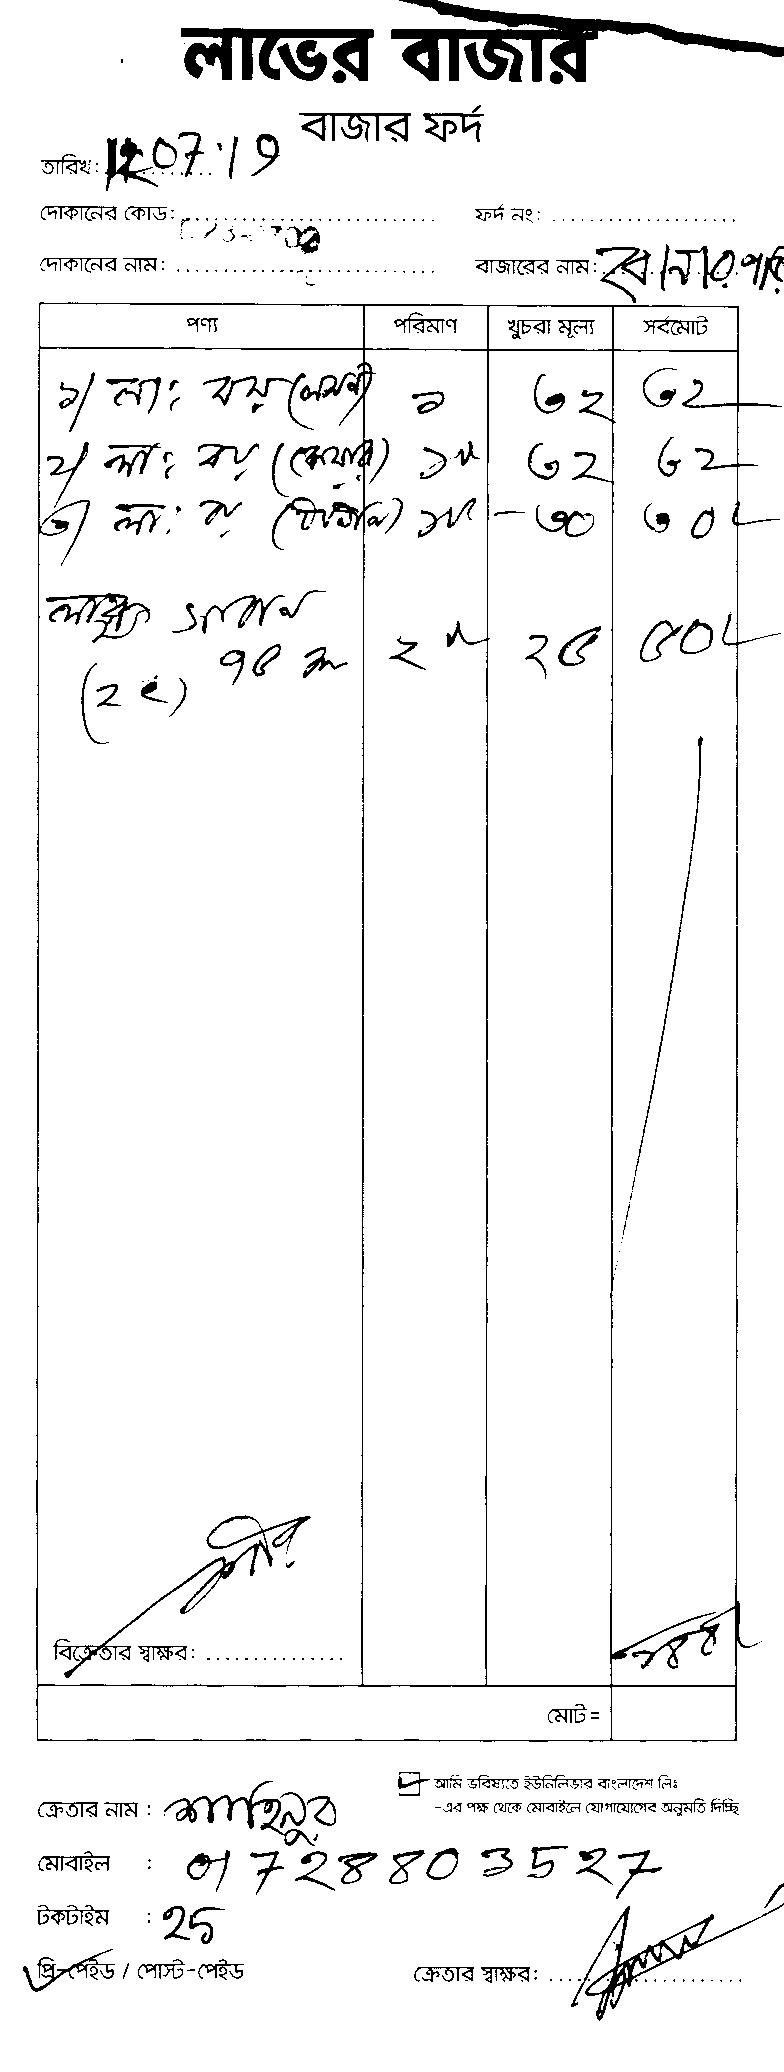 লাভের বাজার
বাজার ফর্দ
তারিখ: 12 07 19
দোকানের কোড: ফর্দ নং:
দোকানের নাম: বাজারের নাম:
পণ্য পরিমাণ খুচরা মূল্য সর্বমোট
১) লা: বয় ১ ৩২ ৩২
২) লা: বয় ১ ৩২ ৩২
৩) লা: ব ১ ৩০ ৩০
লাক্স সাবান
৭৫ ২ ২৫ ৫০
(২
বিক্রেতার স্বাক্ষর: ১৪৪
মোট =
আমি ভবিষ্যতে ইউনিলিভার বাংলাদেশ লিঃ
-এর পক্ষ থেকে মোবাইলে যোগাযোগের অনুমতি দিচ্ছি
ক্রেতার নাম : শাহিনুর
মোবাইল : 01728803527
টকটাইম : 25
প্রি-পেইড / পোস্ট-পেইড ক্রেতার স্বাক্ষর: